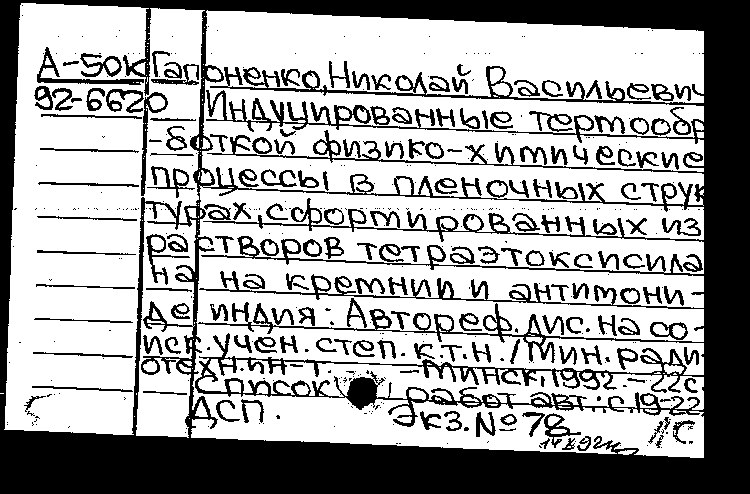 А-50к Гапоненко, Николай Васильевич
92-6620 Индуцированные термообр
-боткой физико-химические
процессы в пленочных струк
турах, сформированных из
растворов тетраэтоксисила
на на кремнии и антимони-
де индия: Автореф. дис. на со-
иск. учен. степ. к.т.н. / Мин. ради
отехн. ин-т. -Минск, 1992. - 22с.
Список работ авт.: с.19-22
ДСП. Экз. № 78